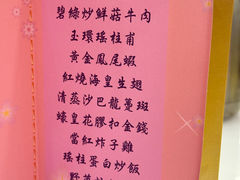 碧綠炒鮮菇牛肉
玉環瑤柱甫
黃金鳳尾蝦
紅燒海皇生翅
清蒸沙巴龍躉斑
蠔皇花膠扣金錢
當紅炸子雞
瑤柱蛋白炒飯